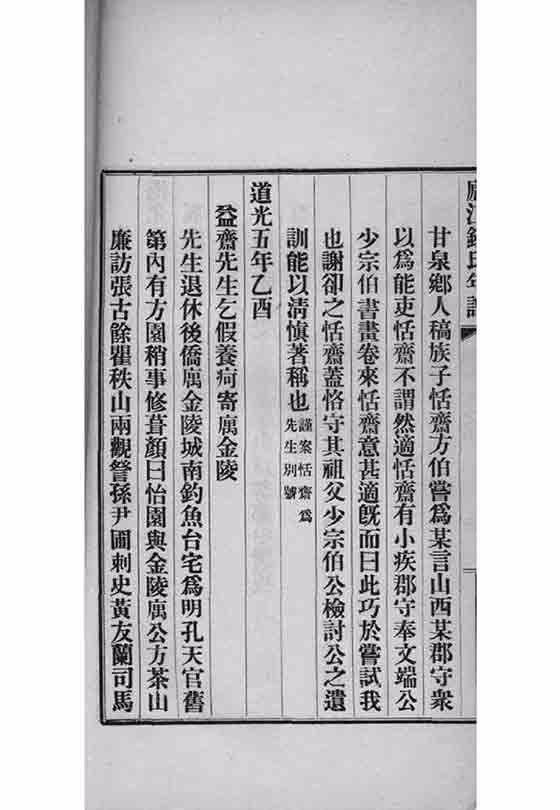 廬江錢氏年譜
甘泉鄉人稿族子恬齋方伯嘗爲某言山西某郡守衆
以爲能吏恬齋不謂然適恬齋有小疾郡守奉文端公
少宗伯書畫卷來恬齋意甚適旣而曰此巧於嘗試我
也謝卻之恬齋蓋恪守其祖父少宗伯公檢討公之遺
訓能以清愼著稱也謹案恬齋爲
先生別號
道光五年乙酉
益齋先生乞假養疴寄寓金陵
先生退休後僑寓金陵城南釣魚台宅爲明孔天官舊
第內有方園稍事修葺顏曰怡園與金陵寓公方茶山
廉訪張古餘瞿秩山兩觀詧孫尹圃刺史黃友蘭司馬